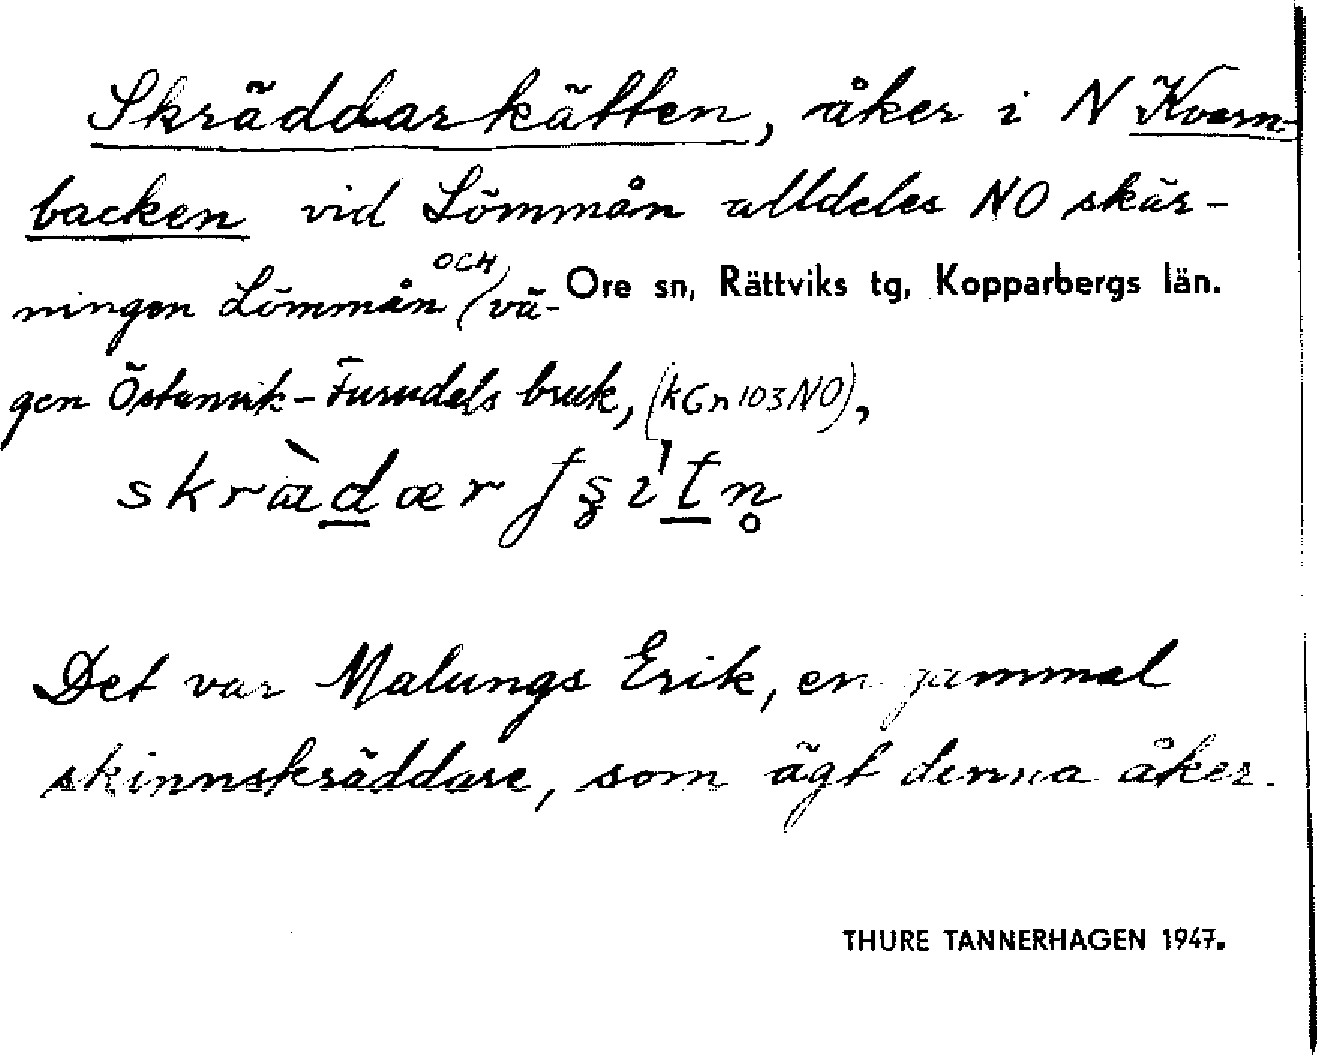 Skräddarkätten, åker i N Kvarn-
backen vid Lömmån alldeles NO skär-
ningen Lömmån OCH vä-
Ore sn, Rättviks tg, Kopparbergs län.
gen Östanvik-Furudals bruk, (kGn 103 NO),
Det var Malungs Erik, en gammal
skinnskräddare, som ägt denna åker.
THURE TANNERHAGEN 1947.